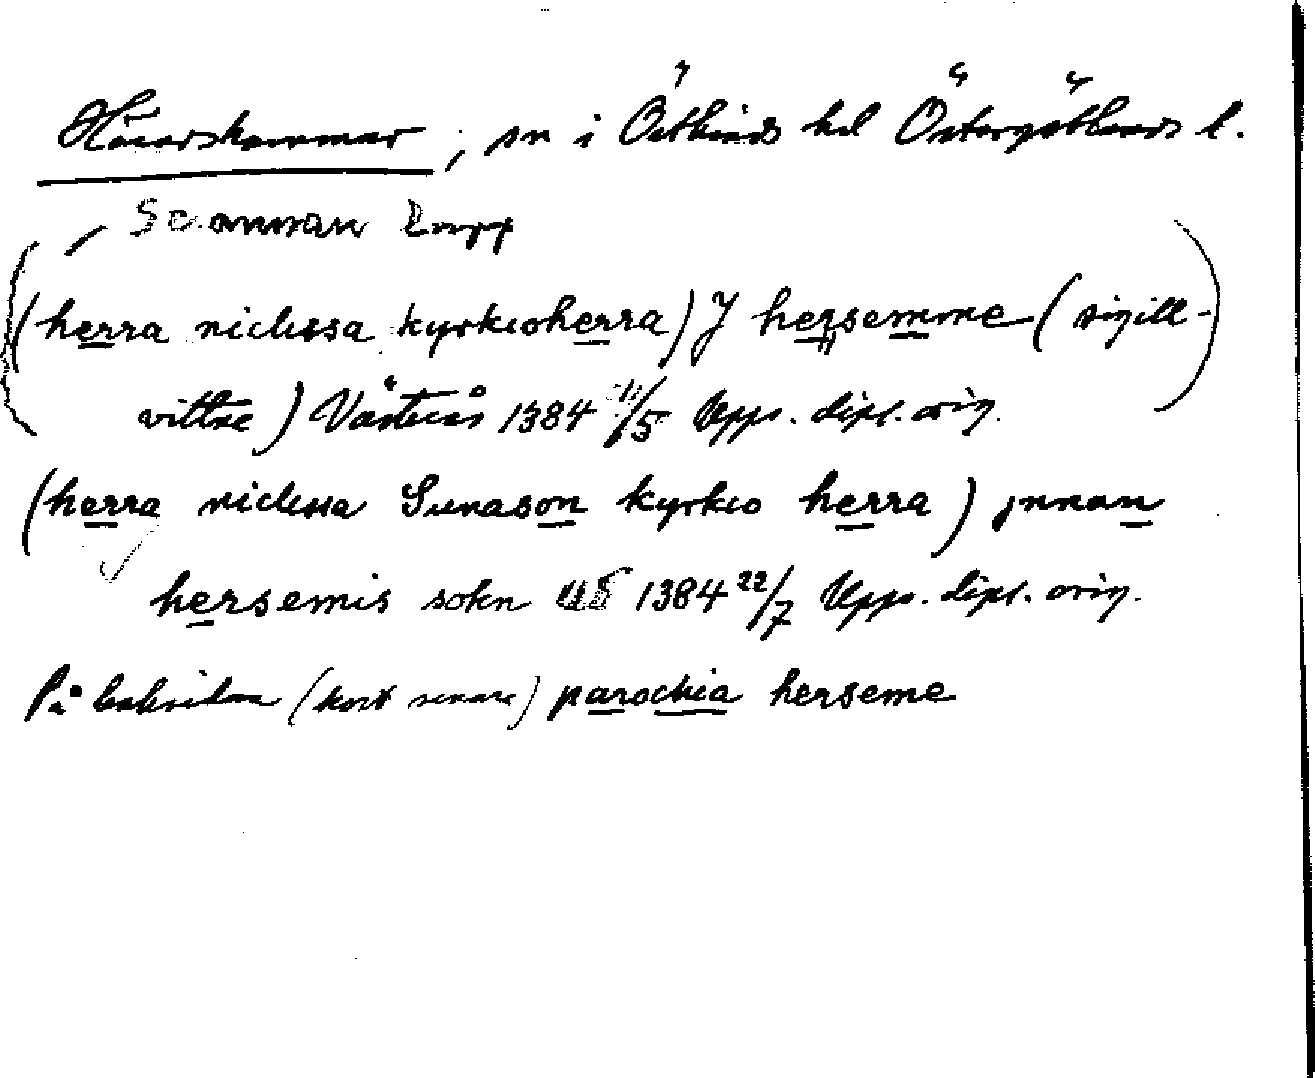 Häradshammar, sn i Östkinds hd Östergötlands l.
Se annan lapp
(herra niclissa kyrkioherra) J hersemme (sigill-
vittne) Västerås 1384 11/5 Upps. dipl. orig.
(herra niclissa Sunason kyrkio herra) jnnan
hersemis sokn 1384 22/7 Upps. dipl. orig.
På baksidan (kort senare) parochia herseme